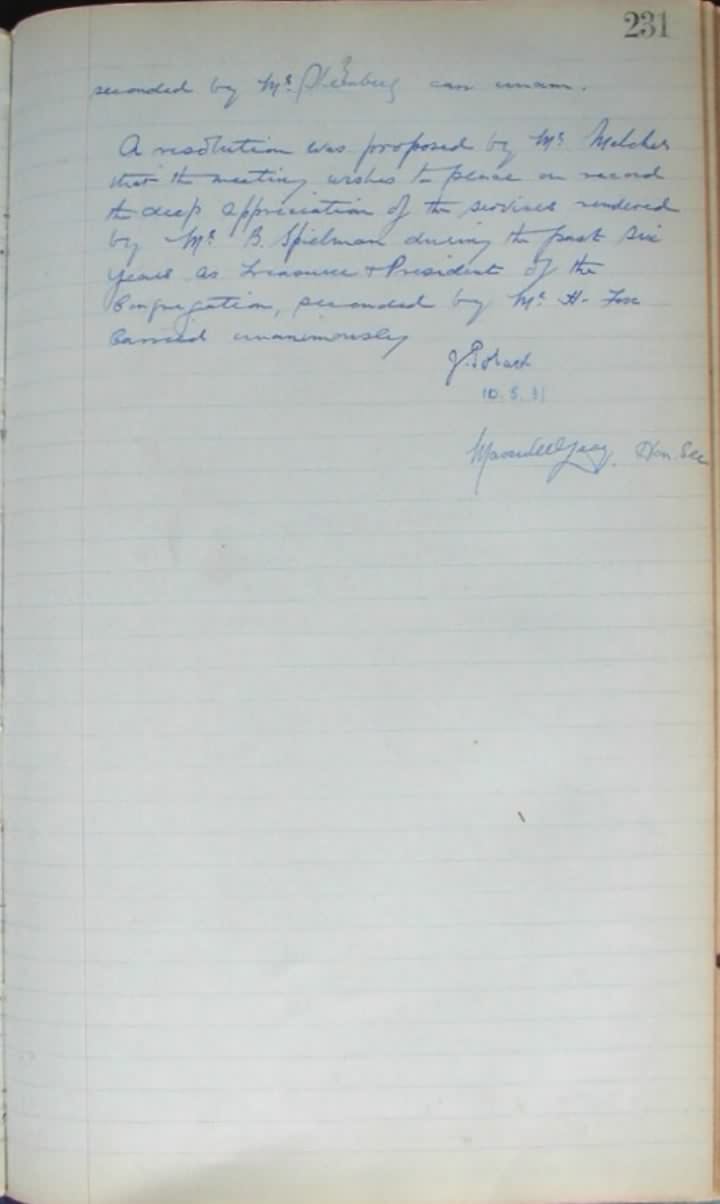 231
seconded by Mr. carr unam.
A resolution was proposed by Mr Melcher
that the meeting wishes to place on record
the deep appreciation of the services rendered
by Mr B. Spielman during the past six
years as Treasurer & President of the
Congregation, seconded by Mr H. Fox
Carried unanimously
10.5.31
Hon. Sec